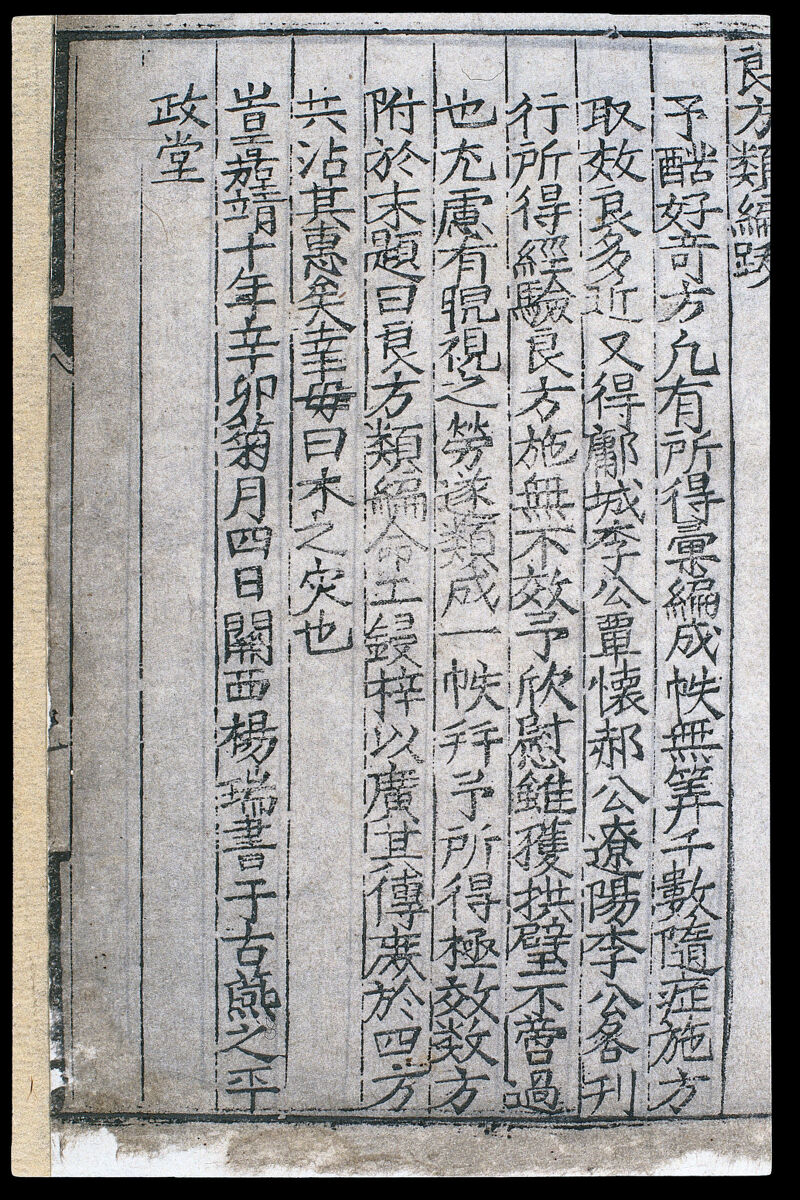 良方類編跋
予酷好奇方凢有所得彙編成帙無筭千數隨症施方
取效良多近又得鄜城李公覃懷郝公遼陽李公畧刋
行所得經驗良方施無不效予欣慰雖獲拱璧不啻過
也尢慮有睍視之勞遂類成一帙并予所得極效数方
附於末題曰良方類編命工鋟梓以廣其傳庻於四方
共沾其惠矣幸毋曰木之灾也
旹皇嘉靖十年辛卯菊月四日關西楊瑞書于古燕之平
政堂